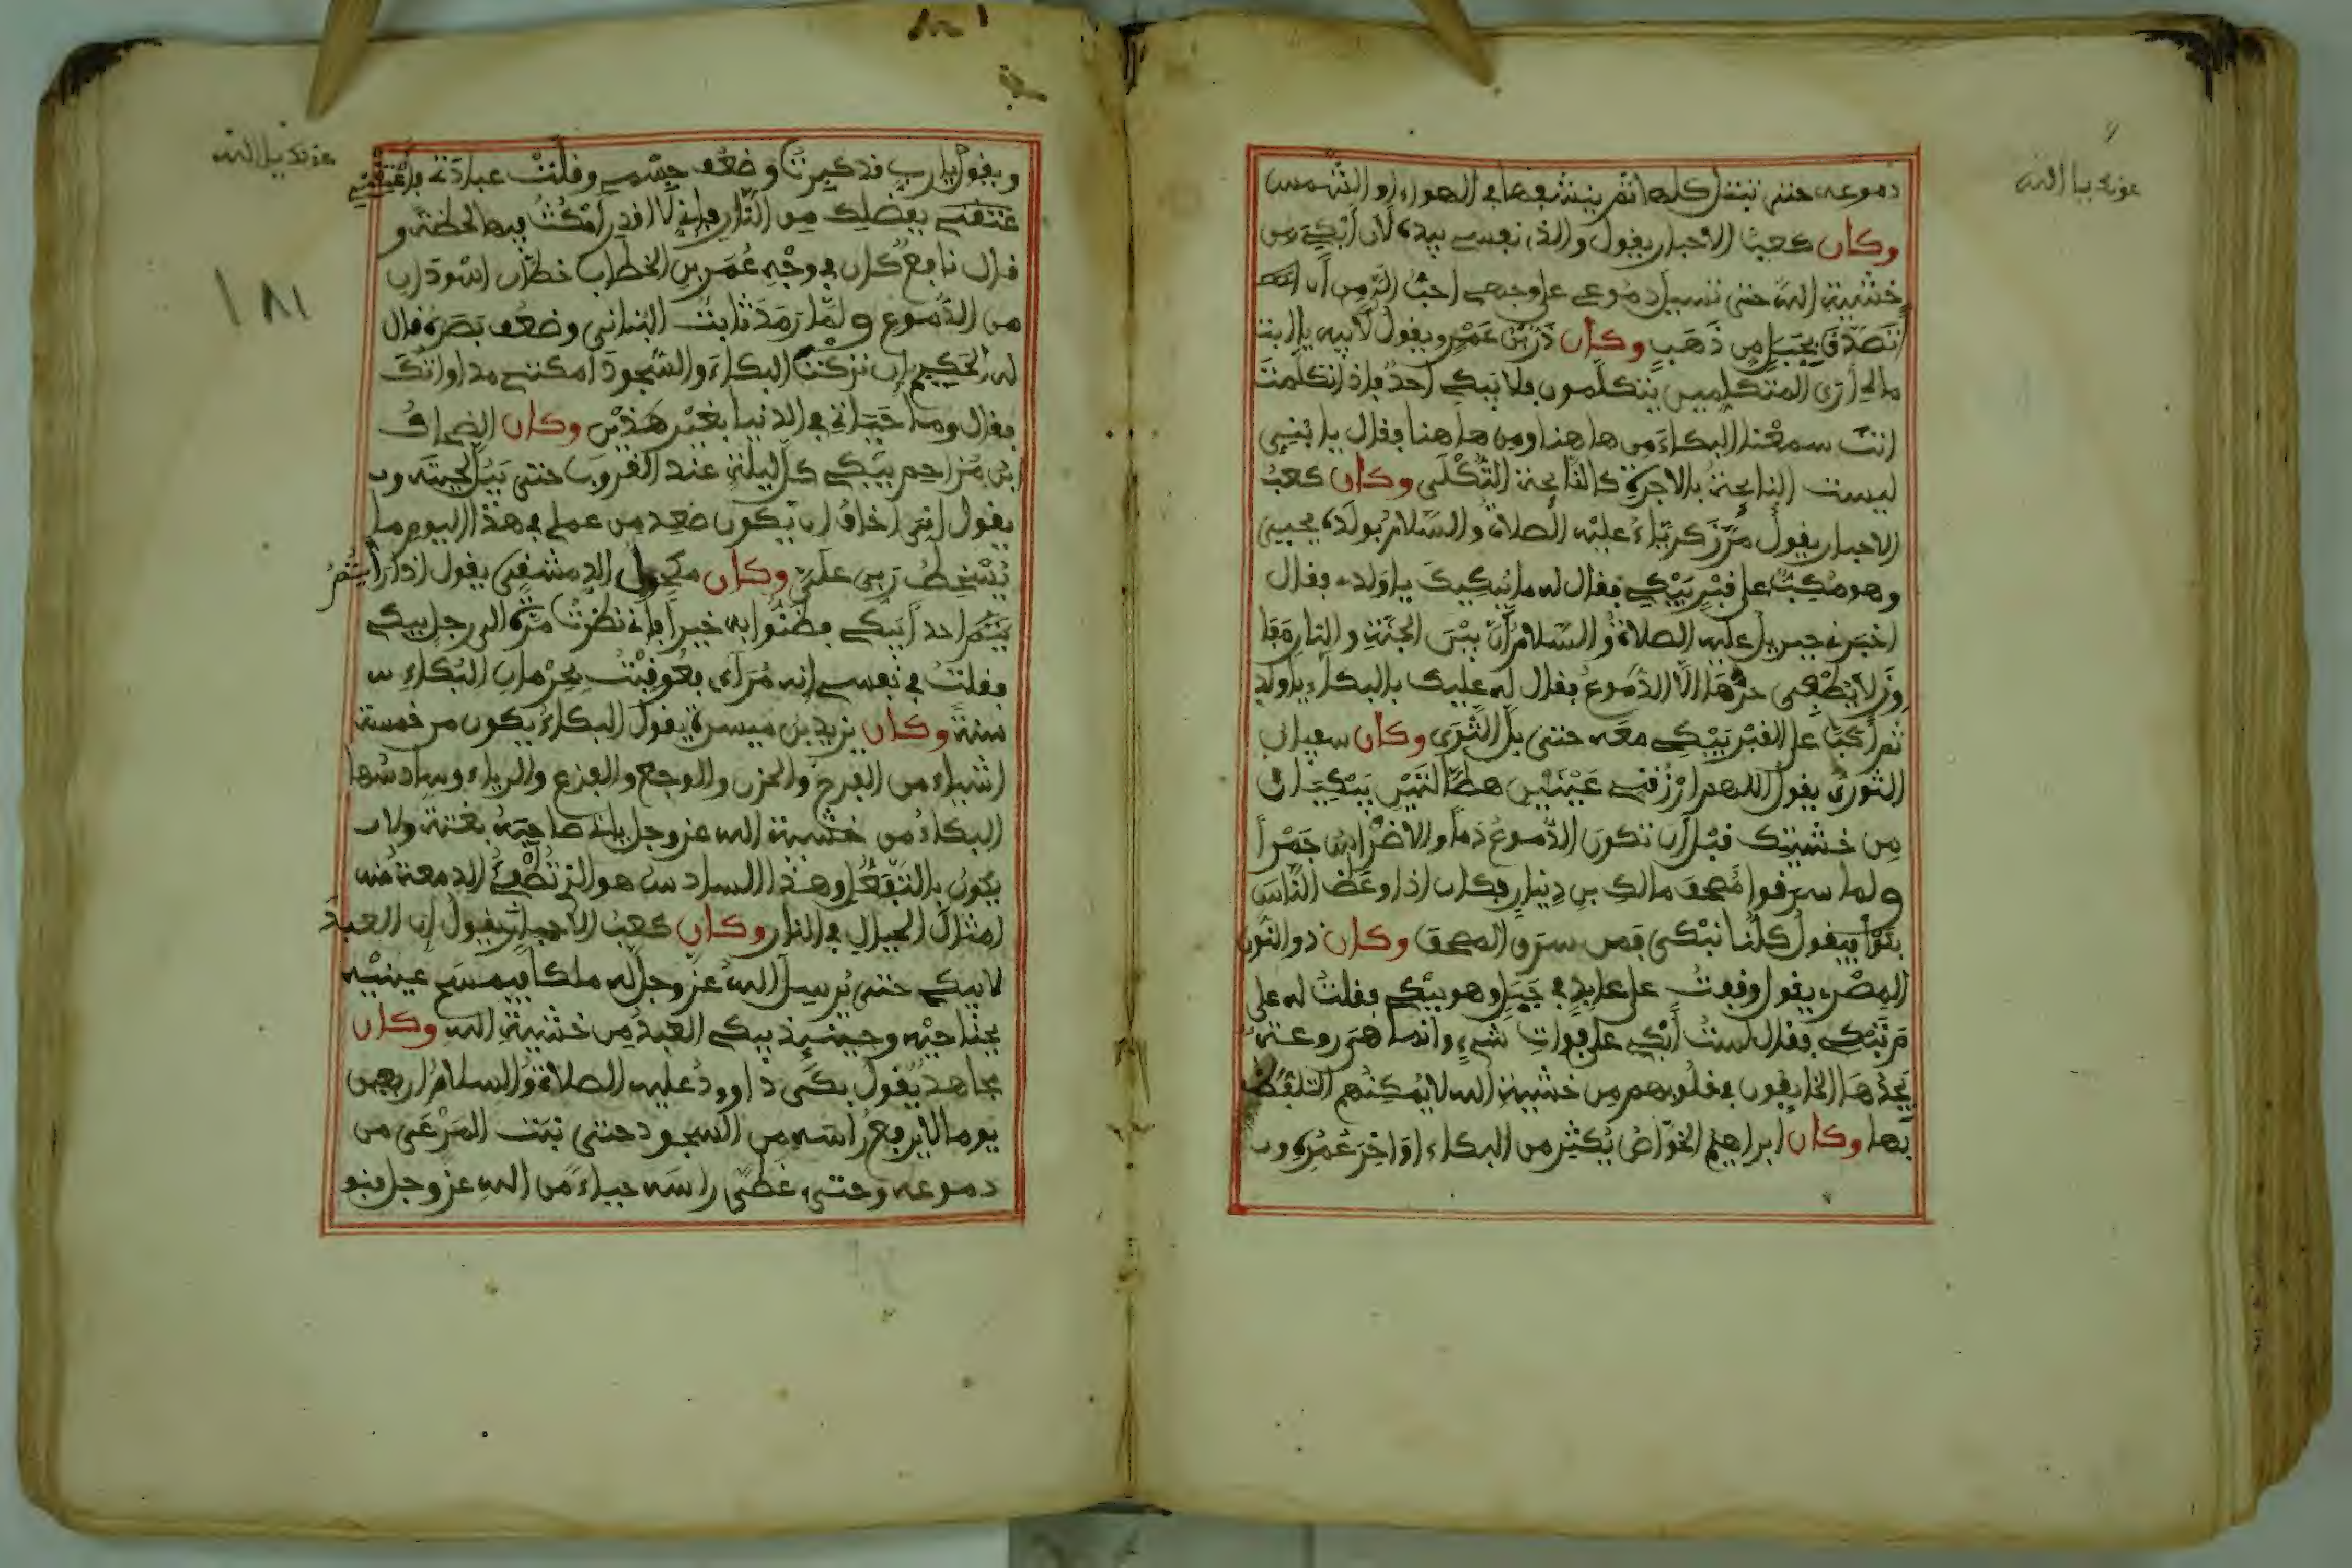 عونك يا الله
دموعه حتى تبتل كلها ثم ينشفها في الهواء او الشمس
وكان كعب الاحبار يقول والذي نفسي بيده لان أبكي من
خشية الله حتى تسيل دموعي على وجهي احب الي من أن
اتصدق بجبل من ذهب وكان ذر بن عمر ويقول لأبيه يا ابت
مالي أرى المتكلمين يتكلمون فلا يبكي احد فإذا تكلمت
انت سمعنا البكاء من هاهنا ومن هاهنا فقال يا بني
ليست النايحة بالاجرة كالنايحة الثكلى وكان كعب
الاحبار يقول مر زكرياء عليه الصلاة والسلام بولده يحيى
وهو مكب على قبر يبكي فقال له ما يبكيك يا ولدي فقال
اخبرني جبريل عليه الصلاة والسلام أن بين الجنة والنار مفا
وز لا يطفى حرها الا الدموع فقال له عليك بالبكاء يا ولدي
ثم أكب على القبر يبكي معه حتى بل الثرى وكان سفيان
الثوري يقول اللهم ارزقني عينين هطالتين يبكيان
من خشيتك قبل أن تكون الدموع دما والاضراس جمرا
ولما سرقوا مصحف مالك بن دينار فكان اذا وعظ الناس
بكوا فيقول كلنا نبكي فمن سرق المصحف وكان ذو النون
المصري يقول وقفت على عابد في جبل وهو يبكي فقلت له على
م تبكي فقال لست أبكي على فوات شيء وانما هي روعة
يجدها الخايفون في قلوبهم من خشية الله لا يمكنهم التلفظ
بها وكان ابراهيم الخواص يكثر من البكاء اواخر عمره و
عونك يا الله
ويقول يا رب قد كبرت وضعف جسمي وقلت عبادتي فأعتقني
عتقني بفضلك من النار فإني لا اقدر امكث فيها لحظة و
قال نافع كان في وجه عمر بن الخطاب خطان اسودان
من الدموع ولما رمد ثابت البناني وضعف بصره قال
له الحكيم ان تركت البكاء والسجود امكنني مداواتك
فقال وما حياتي في الدنيا بغير هذين وكان الضحاك
بن مزاحم يبكي كل ليلة عند الغروب حتى يبل لحيته و
يقول انى اخاف ان يكون صعد من عملي في هذا اليوم ما
يسخط ربي علي وكان مكحول الدمشقي يقول اذا رأيتم
احدا يبكي فظنوا به خيرا فإني نظرت مرة الى رجل يبكي
فقلت في نفسي انه مراءي فعوقبت بحرمان البكاء
سنة وكان يزيد بن ميسرة يقول البكاء يكون من خمسة
اشياء من الفرح والحزن والوجع والفزع والرياء وسادسها
البكاء من خشية الله عز وجل ياتي صاحبه بغتة ولا
يكون بالتفعل وهذا السادس هو الذي تطفئ الدمعة منه
امثال الجبال في النار وكان كعب الاحبار يقول ان العبد
لا يبكي حتى يرسل الله عز وجل له ملكا فيمسح عينيه
بجناحيه وحينيذ يبكي العبد من خشية الله وكان
مجاهد يقول بكى داوود عليه الصلاة والسلام اربعين
يوما لا يرفع رأسه من السجود حتى نبت المرعى من
دموعه وحتى غطى راسه حياء من الله عز وجل
١٨١